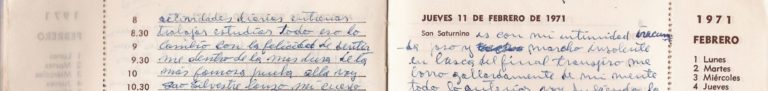 1971
FEBRERO
8 actividades diarias entrenar
8.30 trabajar estudiar todo eso lo
9 cambio con la felicidad de sentir
9.30 me dentro de la mas dura de la
10 más famosa prueba ella voy
10,30 São Silvestre lanzo mi cuerpo
JUEVES 11 DE FEBRERO DE 1971
San Saturnino es con mi intimidad
y marcho insolente
en busca del final transpiro me
como gallardamente de mi mente
todo lo anterior
1971
FEBRERO
1 Lunes
2 Martes
3 Miércoles
4 Jueves